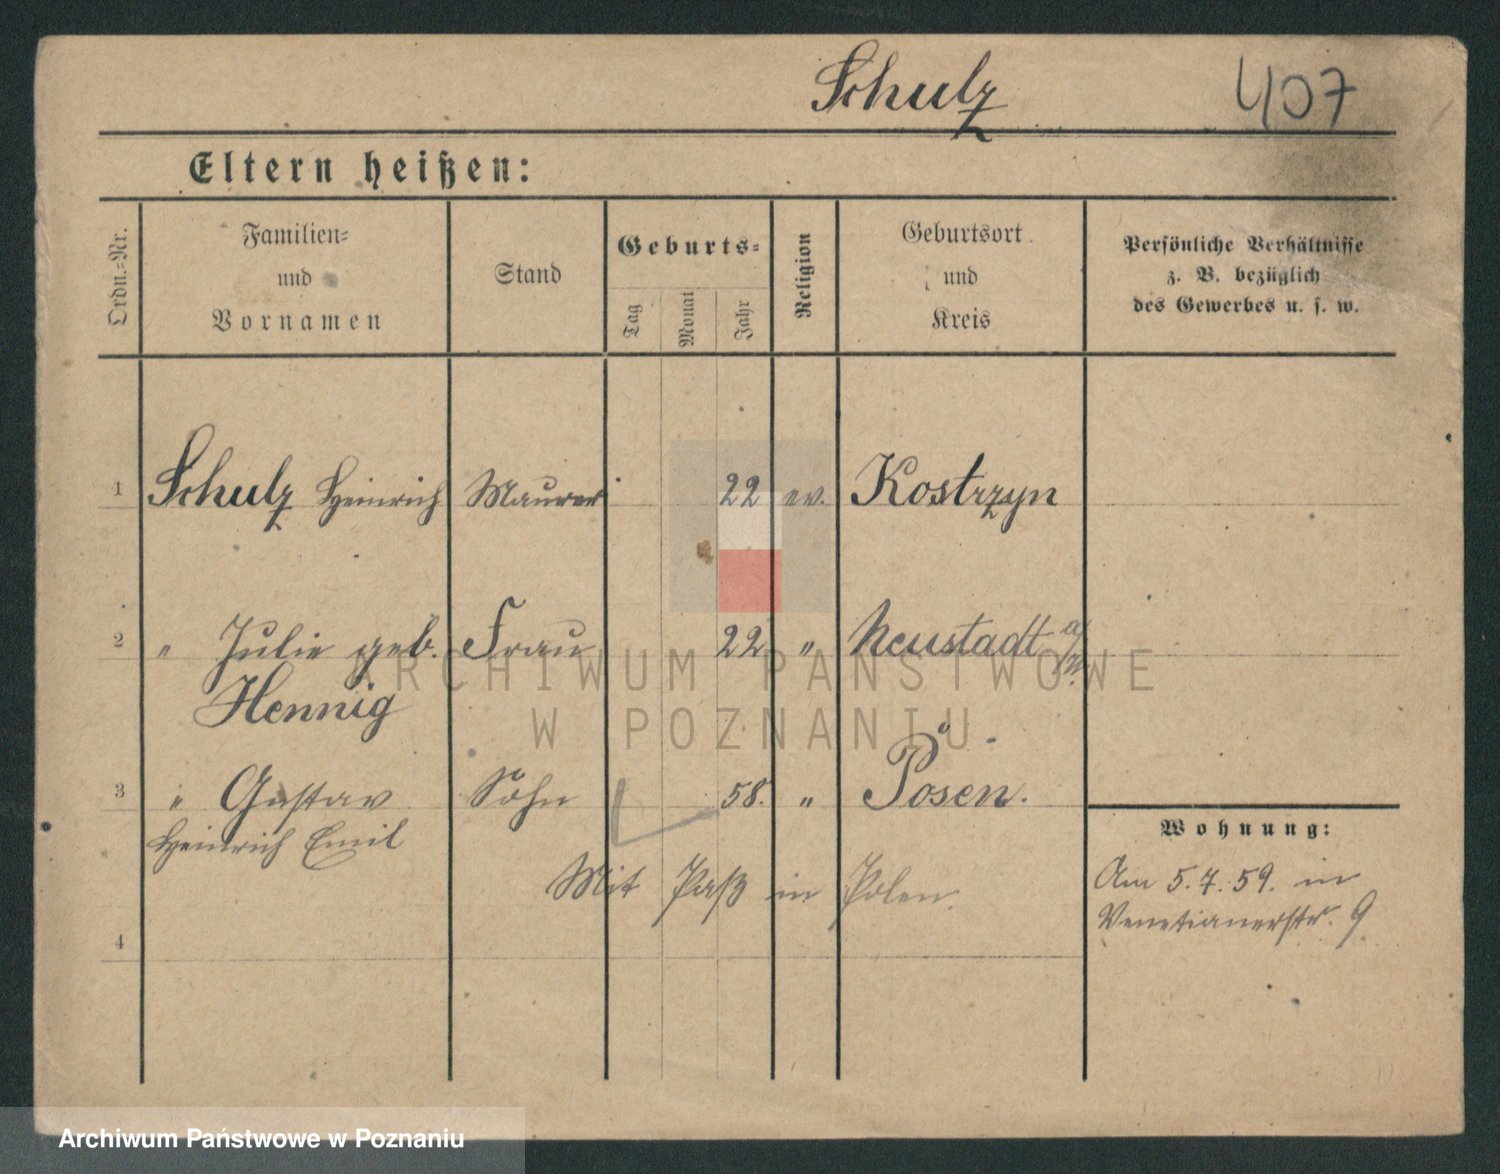 Schulz 407
Eltern heißen:
Ordn.-Nr. Familien- und Vornamen Stand Geburts- Tag Monat Jahr Religion Geburtsort und Kreis Persönliche Verhältnisse z. B. bezüglich des Gewerbes u. s. w.
1 Schulz Heinrich Maurer 22 ev. Kostrzyn
2 " Julie geb. Frau 22 " Neustadt a/W.
Hennig
3 " Gustav Sohn 58. " Posen.
Heinrich Emil
Mit Paß in Polen.
4
Wohnung:
Am 5.7.59. in
Venetianerstr. 9
ARCHIWUM PAŃSTWOWE
W POZNANIU
Archiwum Państwowe w Poznaniu